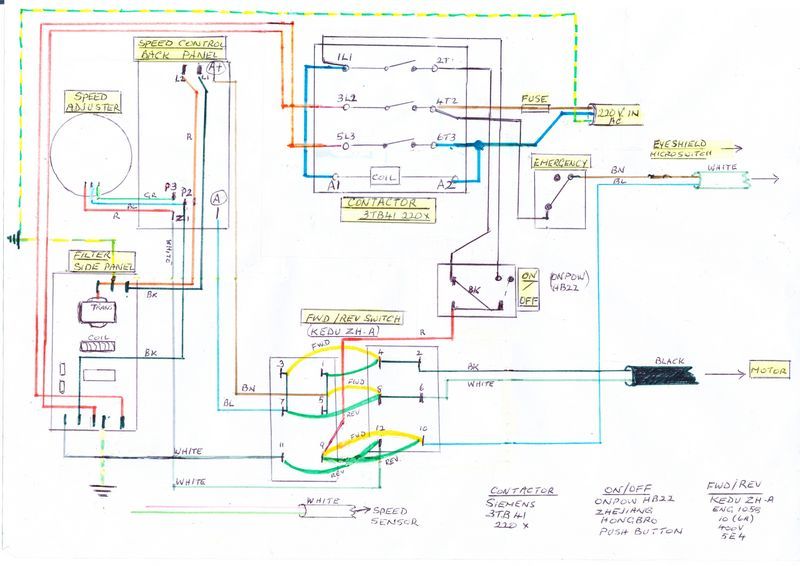 SPEED CONTROL
BACK PANEL
A+
L2
L1
SPEED
ADJUSTER
R
P3
P2
GR
BL
R
Z1
A
WHITE
1L1
2T1
3L2
4T2
5L3
6T3
A1
COIL
A2
CONTACTOR
3TB41 220X
FUSE
220 V. IN
AC
EMERGENCY
EYESHIELD
MICROSWITCH
WHITE
BN
BL
FILTER
SIDE PANEL
TRANS
COIL
BK
BK
BK
1
ON
/
OFF
(ONPOW)
HB22
FWD/REV SWITCH
(KEDU ZH-A)
R
FWD
3
4
2
BK
BLACK
MOTOR
BN
FWD
5
8
6
WHITE
BL
7
REV
11
9
FWD
12
10
WHITE
REV
REV.
WHITE
WHITE
SPEED
SENSOR
CONTACTOR
SIEMENS
3TB41
220 X
ON/OFF
ONPOW HB22
ZHEJIANG
HONGBRO
PUSH BUTTON
FWD/REV
KEDU ZH-A
10 (6A)
400V
5E4